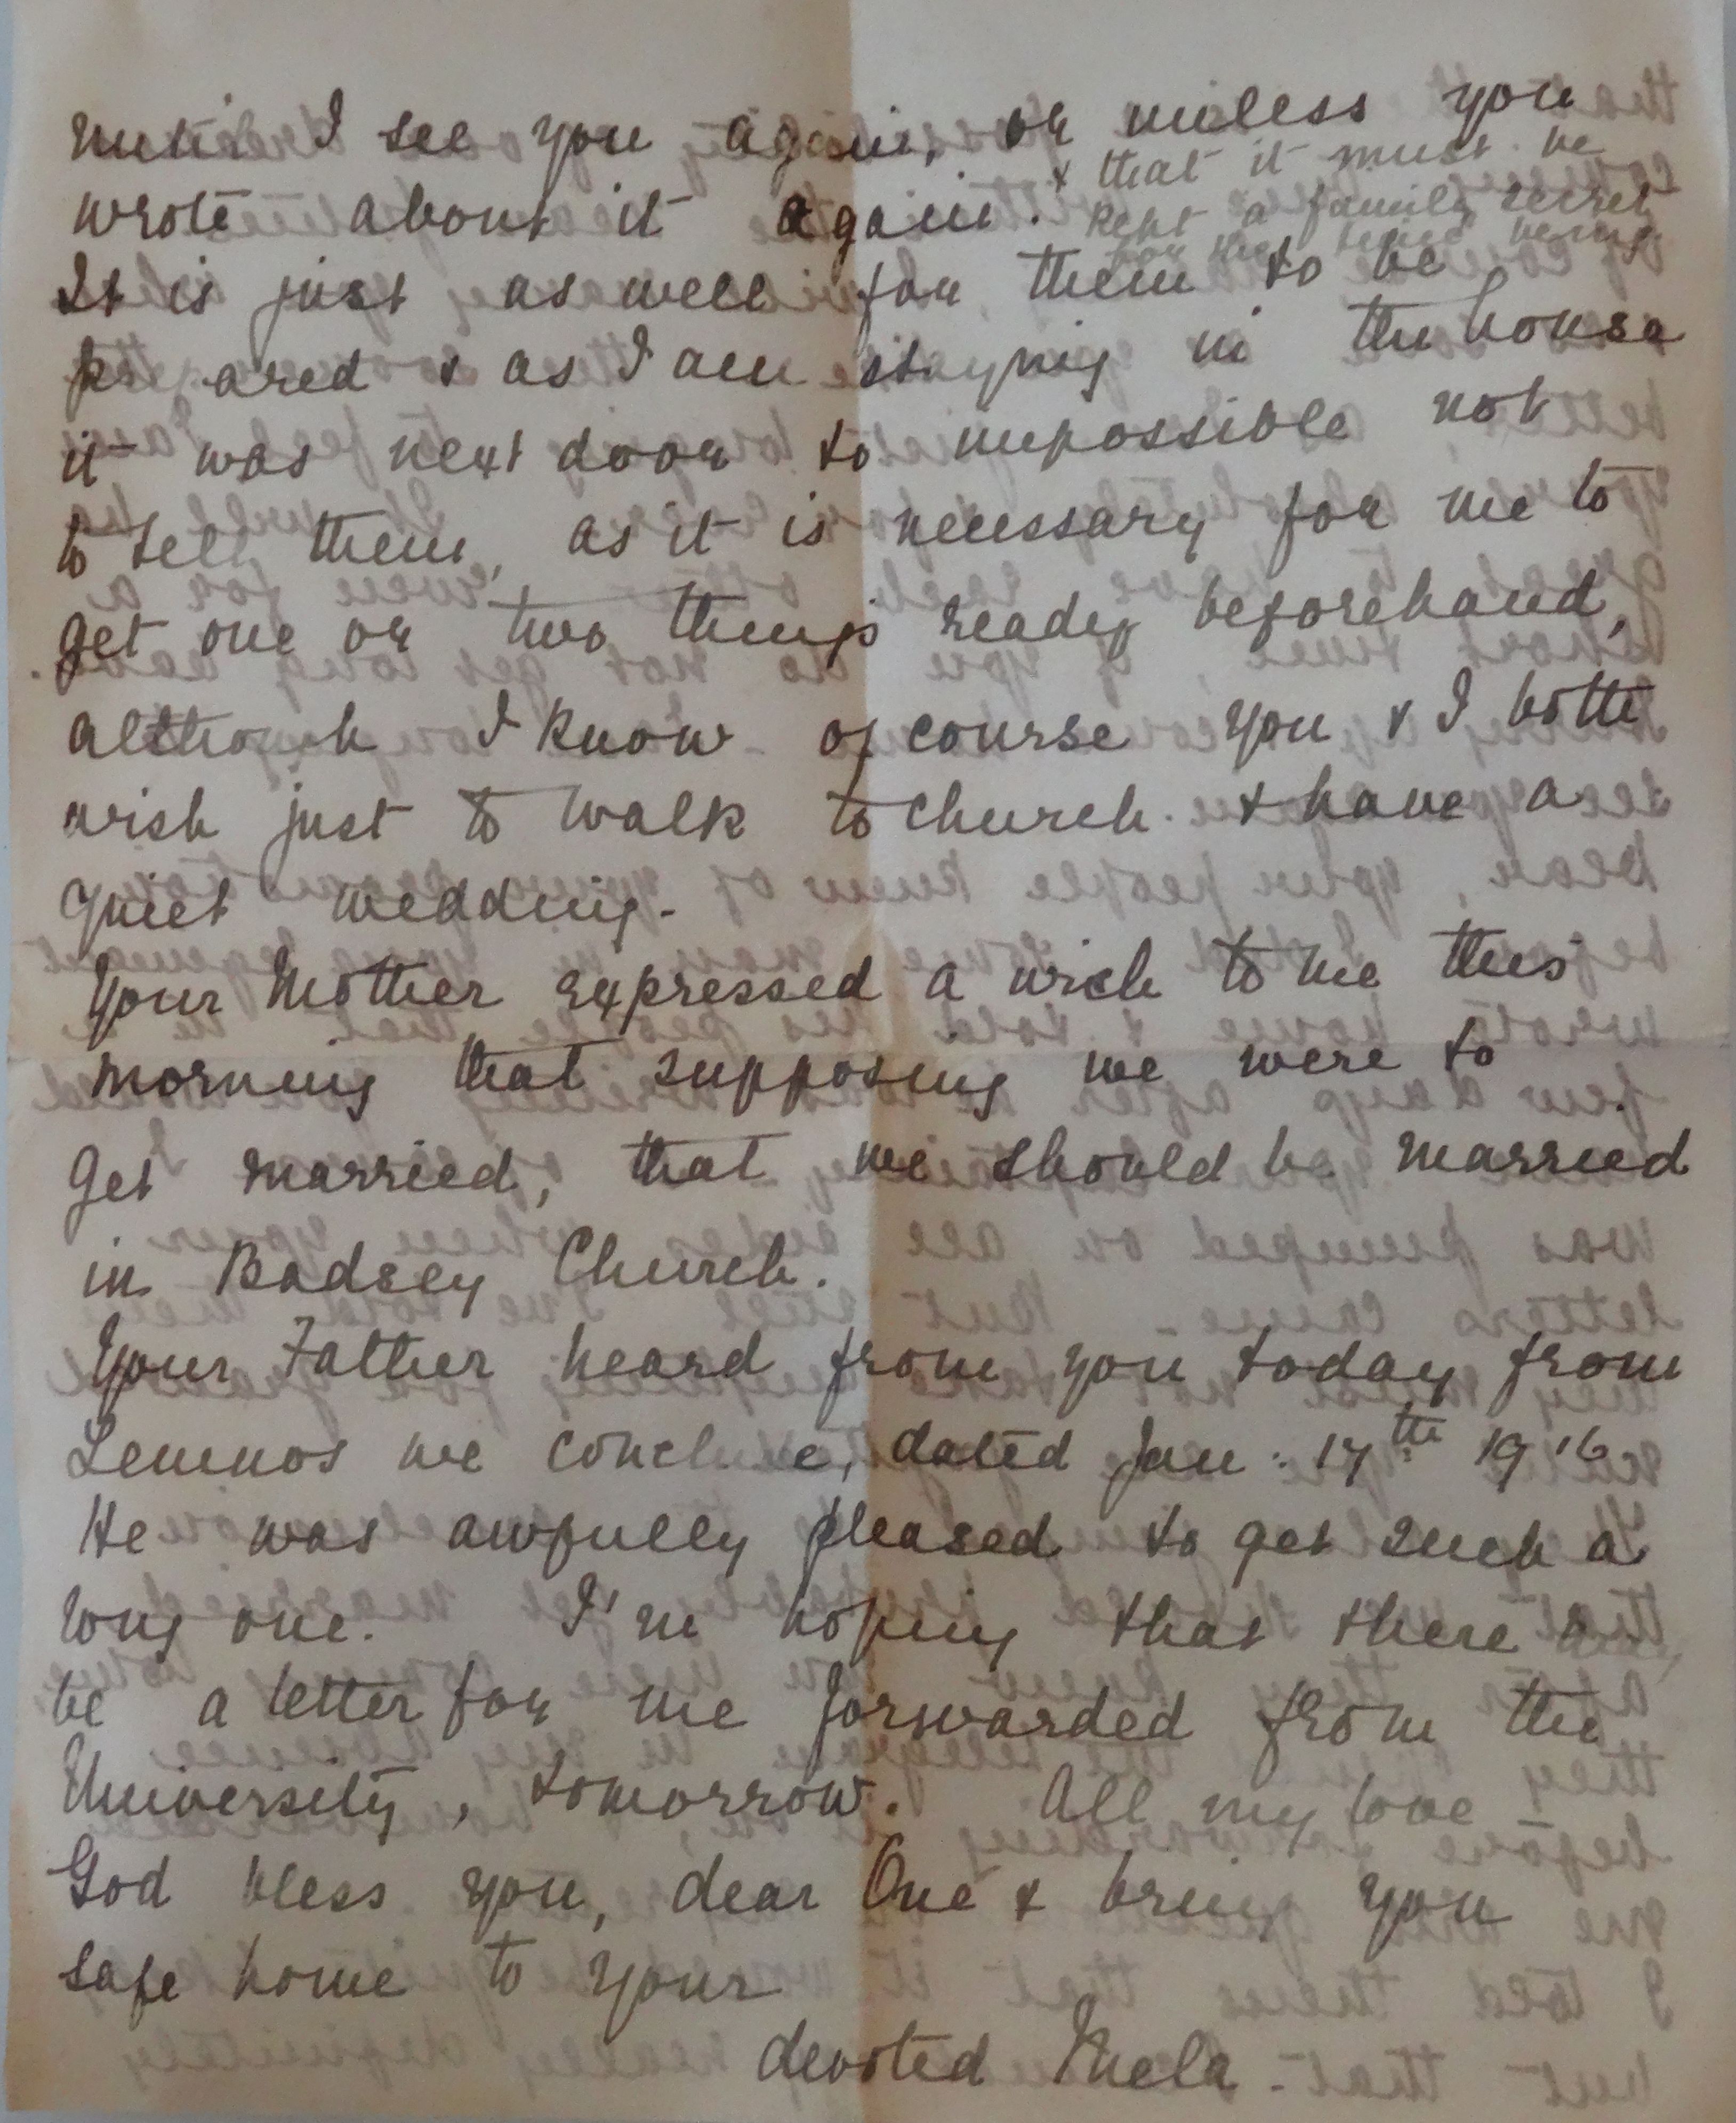 until I see you again, or unless you
wrote about it again. & that it must be
kept a family secret
for the time being
It is just as well for them to be
pr ared & as I am staying in the house
it was next door to impossible not
to tell them, as it is necessary for me to
get one or two things ready beforehand,
although I know of course you & I both
wish just to walk to church & have a
quiet wedding.
Your Mother expressed a wish to me this
morning that supposing we were to
get married, that we should be married
in Badsey Church.
Your Father heard from you today from
Lemnos we conclude, dated Jan: 17th 1916
He was awfully pleased to get such a
long one. I'm hoping that there
be a letter for me forwarded from the
University, tomorrow. All my love
God bless you, dear One & bring you
safe home to your
devoted Mela.